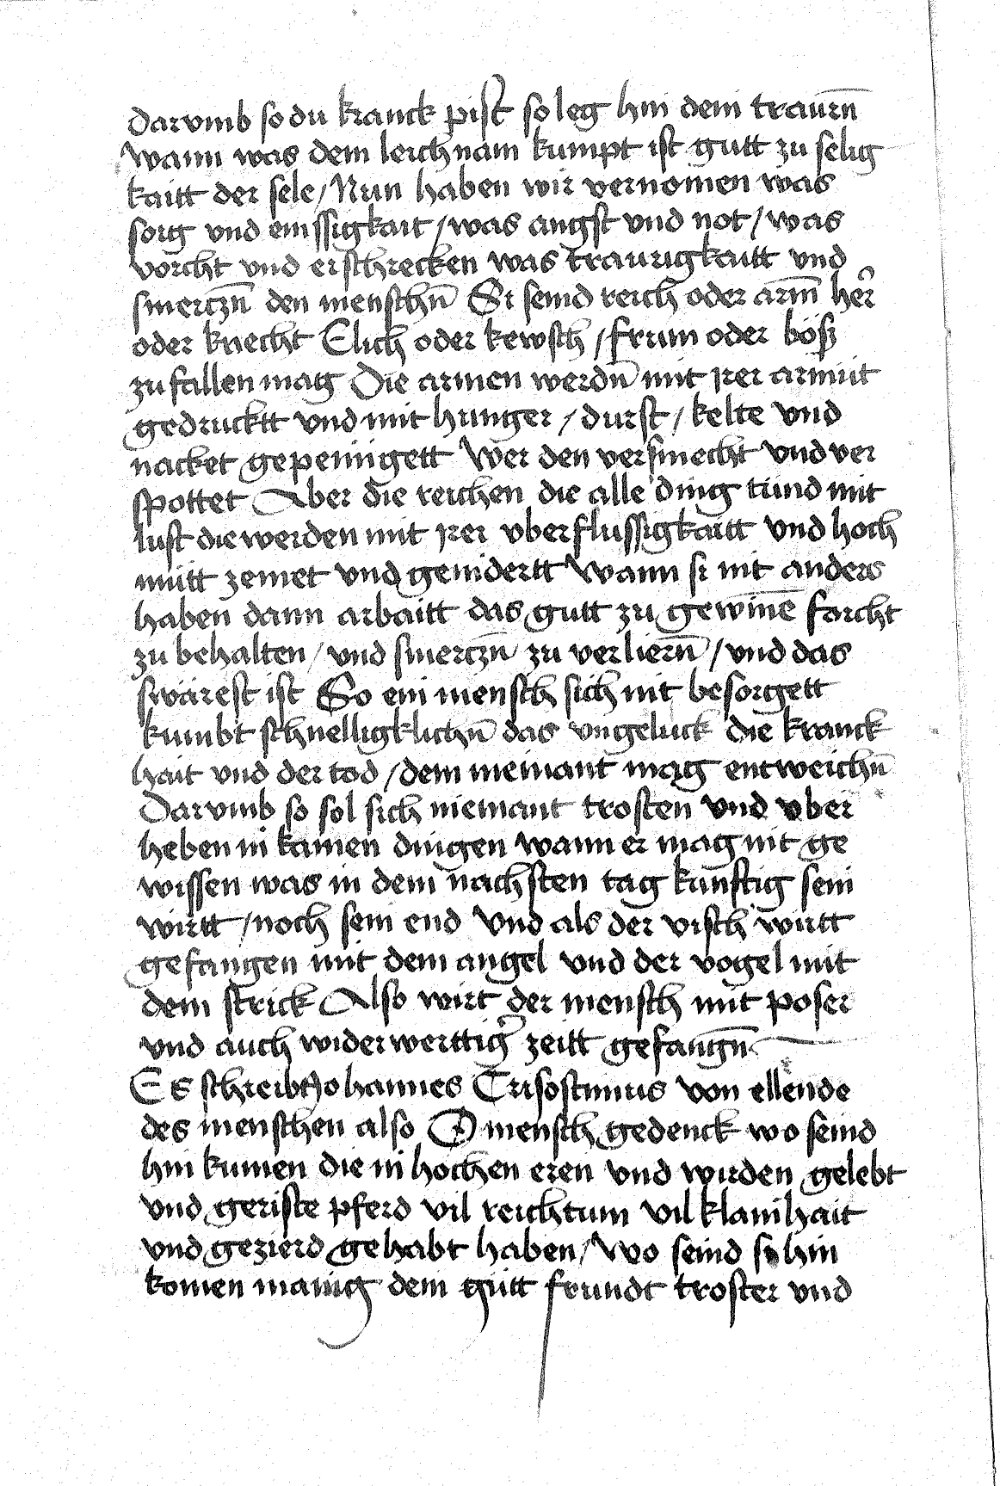 Darvmb so du kranck pist so leg hin dein traurn̄
wann was dem leichnam kumpt ist gutt zu selig
kaitt der sele / Nun haben wir vernomen was
sorg vnd emssigkait / was angst vnd not / was
vorcht vnd erschrecken was traurigkaitt vnd
smerczn̄ den menschn̄ Si seind reich oder arm̄ her̄
oder knecht Elich oder kewsch / frum oder böß
zu fallen mag Die armen werdn̄ mit irer armüt
gedrucktt vnd mit hunger / durst / kelte vnd
nacket gepeinigett Wer den versmecht vnd ver
spottet Aber die reichen die alle ding tund mit
lust die werden mit irer vberflussigkaitt vnd hoch
mütt zemet vnd genidertt Wann si nit anders
haben dann arbaitt das gutt zu gewin̄ē forcht
zu behalten / vnd smerczn̄ zu verliern̄ / vnd das
swärest ist So ein mensch sich nit besorgett
kumbt schnelligklichn̄ das vngeluck die kranck
hait vnd der tod / dem niemant mag entweichn̄
Darvmb so sol sich niemant trosten vnd vber
heben in kainen dingen wann er mag nit ge
wissen was in dem nachsten tag kunftig sein
wirtt / noch sein end Vnd als der visch wirtt
gefangen mit dem angel vnd der vogel mit
dem strick Also wirt der mensch mit poser
vnd auch widerwerttig̉ zeitt gefangn̄
Es schreibt Johannes Crisostimus von ellende
des menschen also O mensch gedenck wo seind
hin kumen die in hochen eren vnd wirden gelebt
vnd geriste pferd vil reichtum vil klainhait
vnd gezierd gehabt haben / Wo seind si hin
komen manig dein gutt frundt troster vnd